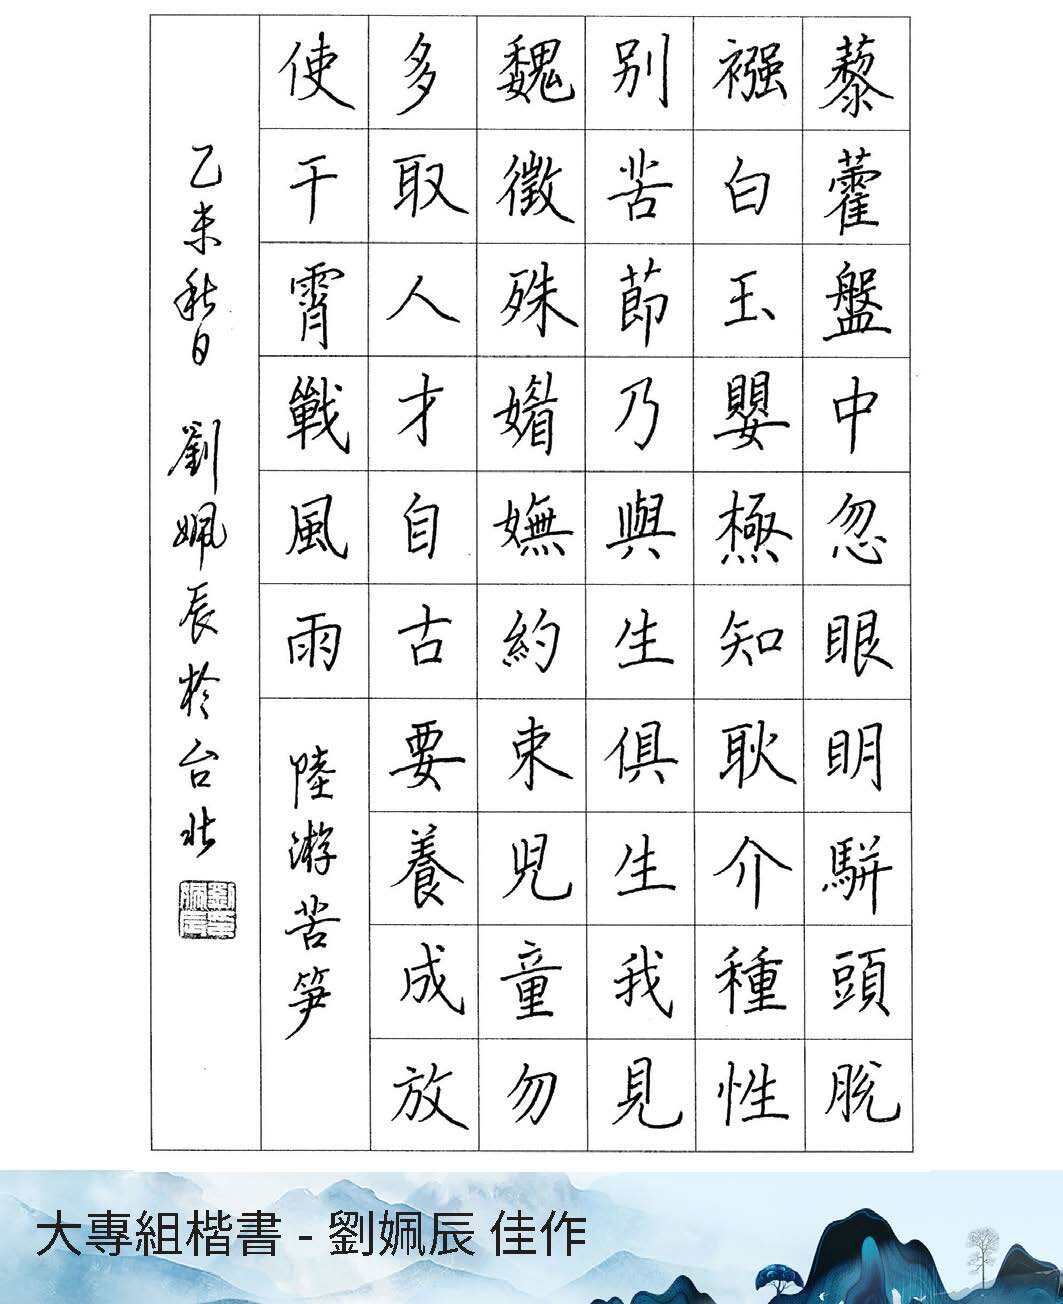 藜藿盤中忽眼明駢頭脫
襁白玉嬰極知耿介種性
別苦節乃與生俱生我見
魏徵殊媚嫵約束兒童勿
多取人才自古要養成放
使干霄戰風雨
陸游苦笋
乙未秋日 劉姵辰於台北
大專組楷書 - 劉姵辰 佳作